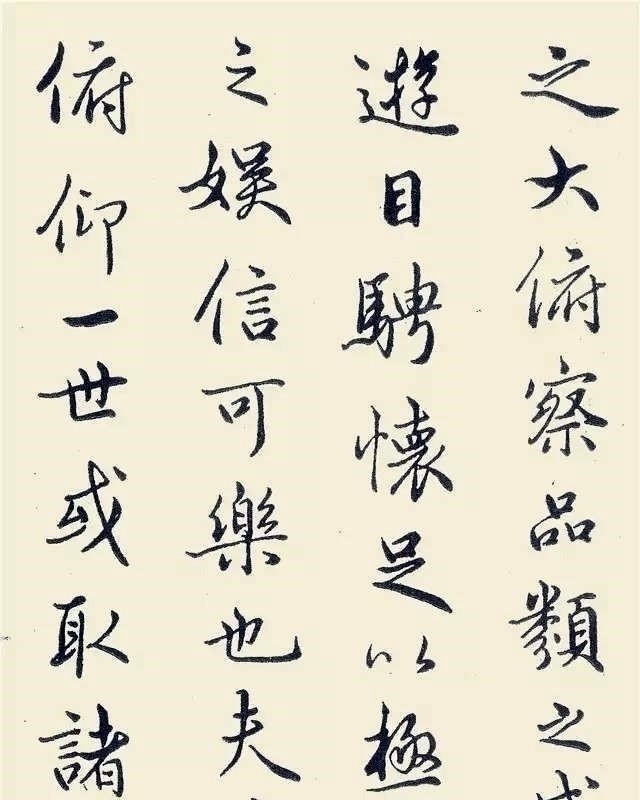 之大俯察品類之
遊目騁懷足以極
之娛信可樂也夫
俯仰一世或取諸